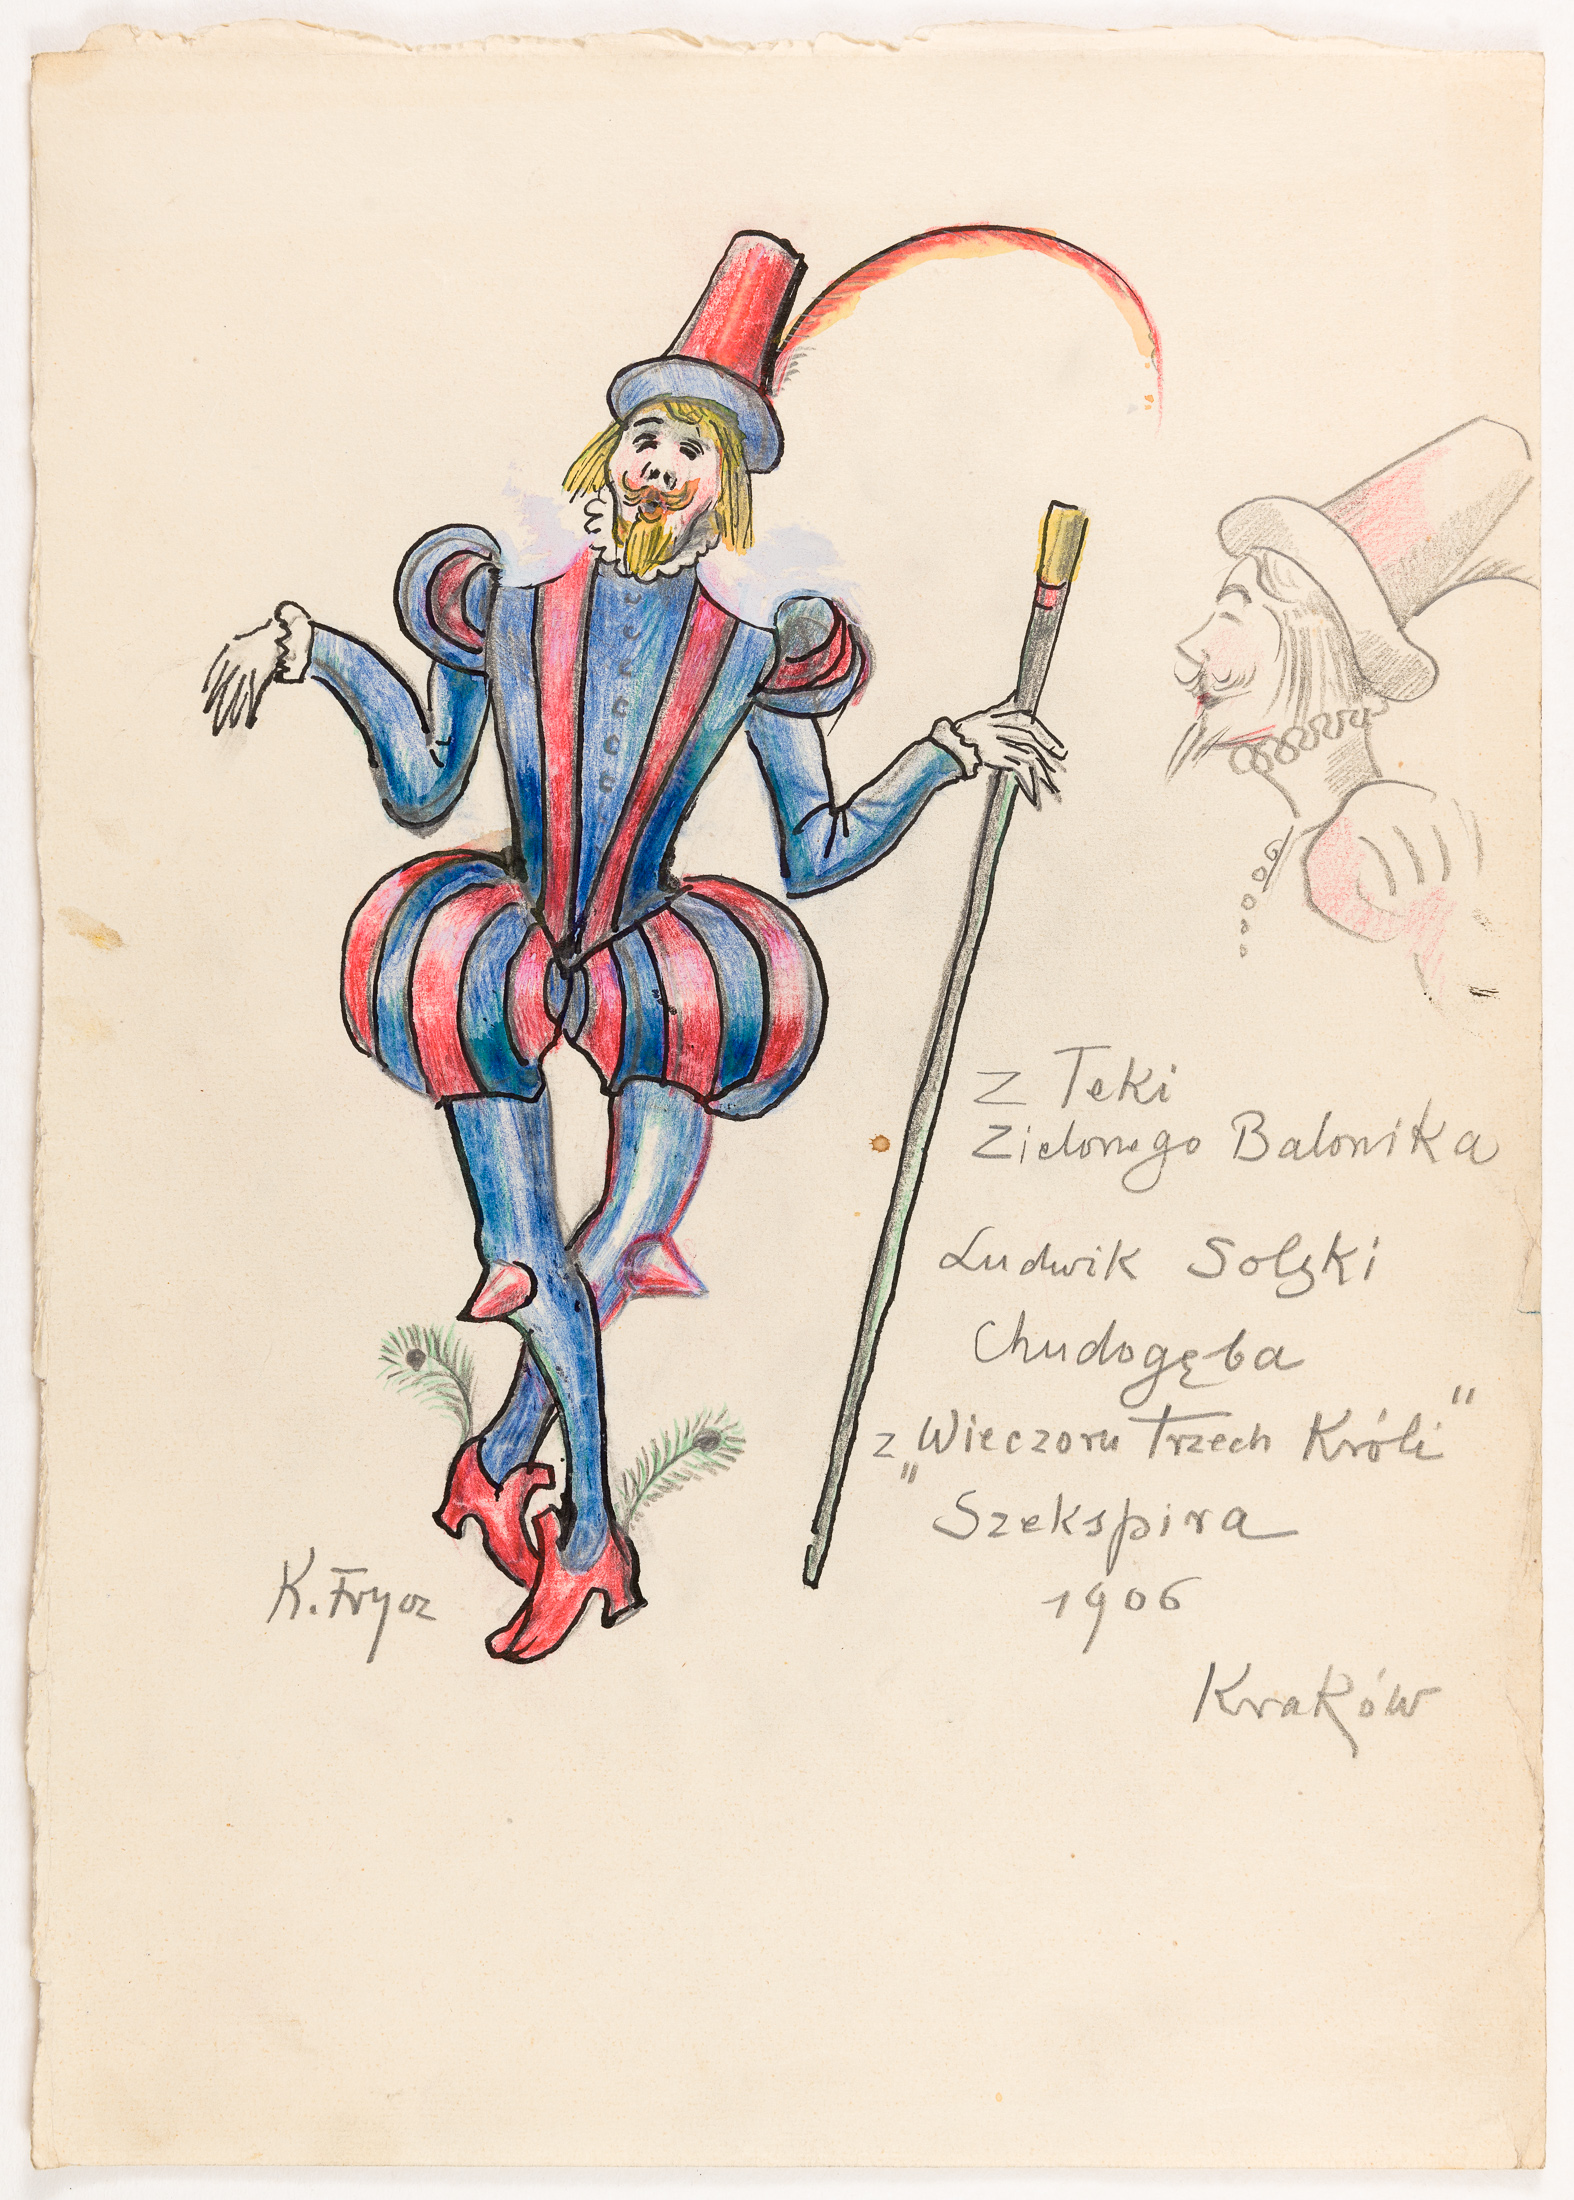 Z Teki
Zielonego Balonika
Ludwik Solski
Chudogęba
z „Wieczoru Trzech Króli"
Szekspira
1906
Kraków
K. Frycz